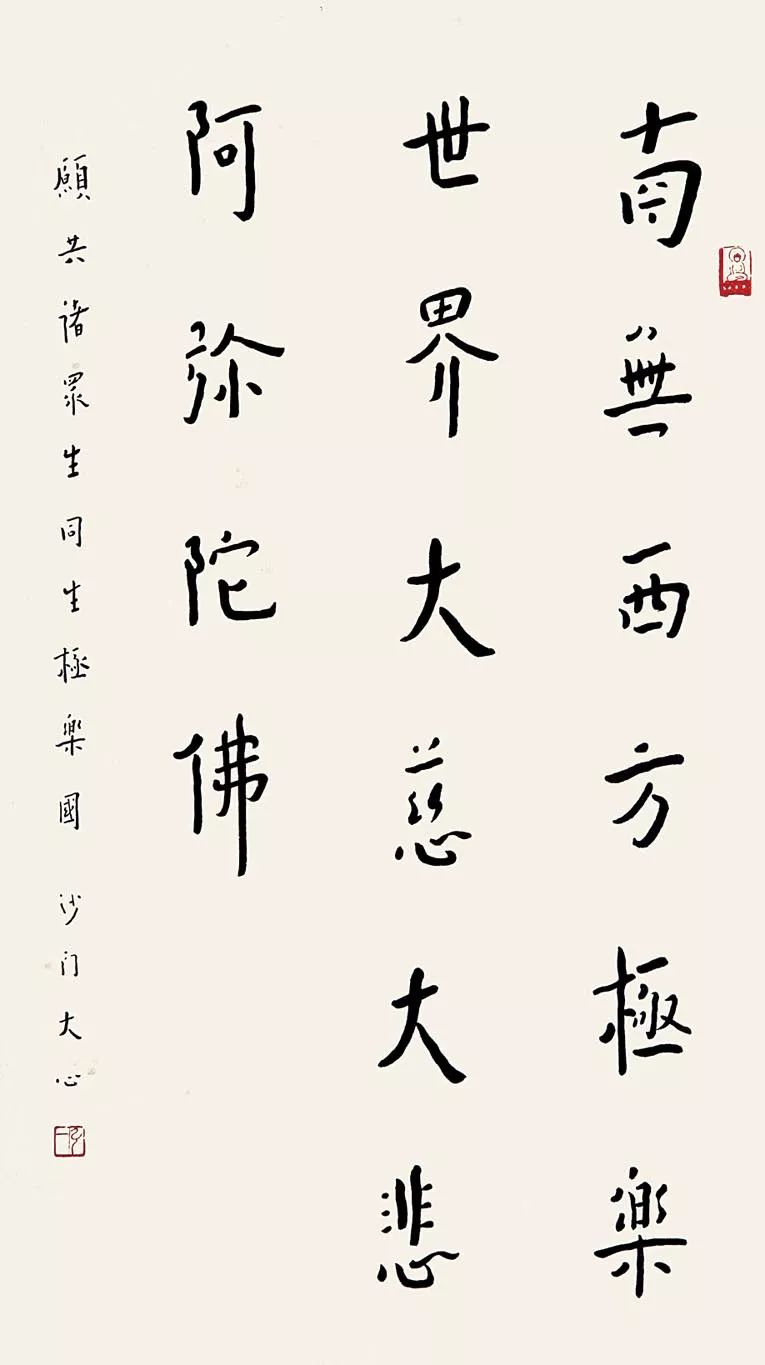 南無西方極樂
世界大慈大悲
阿弥陀佛
願共諸眾生同生極樂國 沙门大心